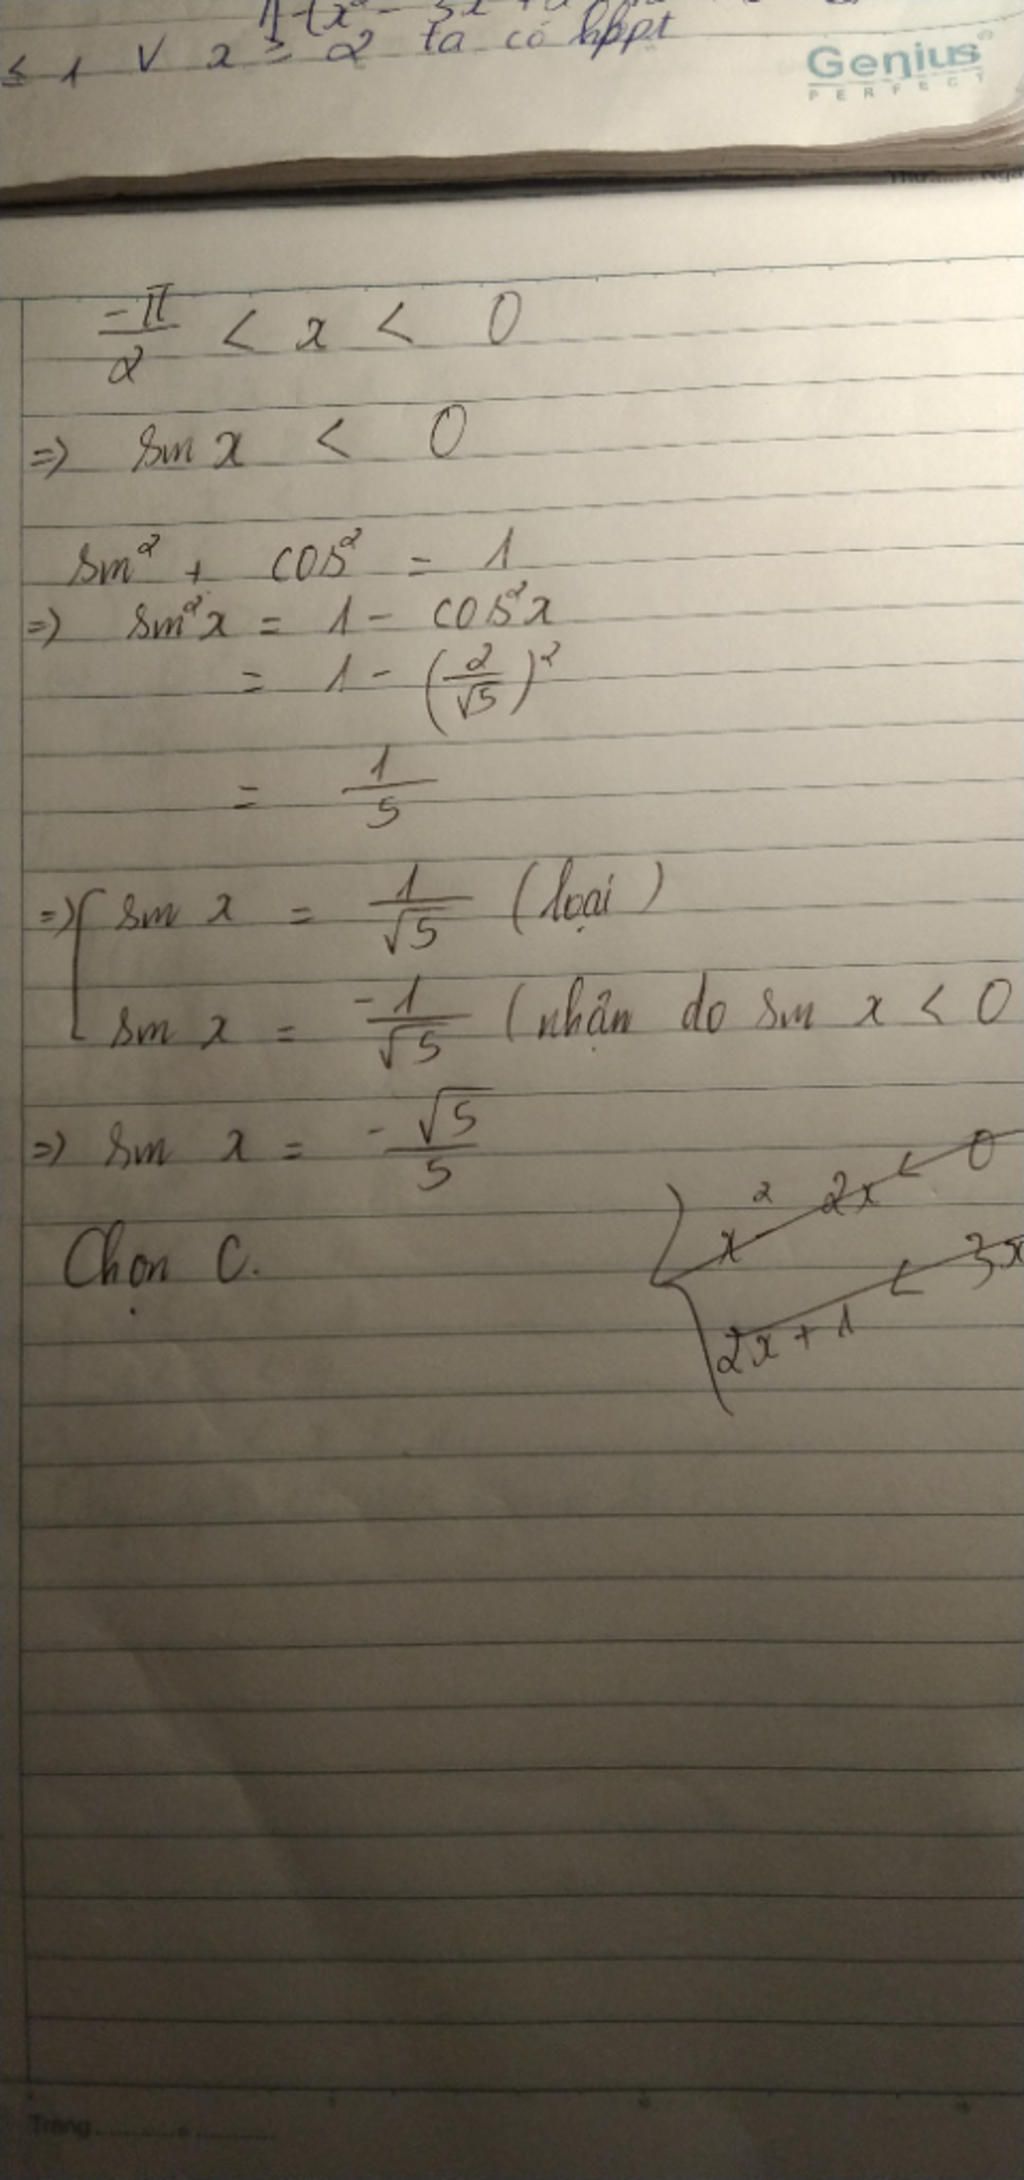 ≤ 1 V x ≥ 2 ta có hbpt
Genius
PERFECT
-π/2 < x < 0
=> sin x < 0
sin² + cos² = 1
=> sin²x = 1 - cos²x
= 1 - (2/√5)²
= 1/5
=> [ sin x = 1/√5 (loại)
sin x = -1/√5 (nhận do sin x < 0
=> sin x = -√5/5
x² 2x < 0
2x + 1 < 3x
Chọn C.
Trang